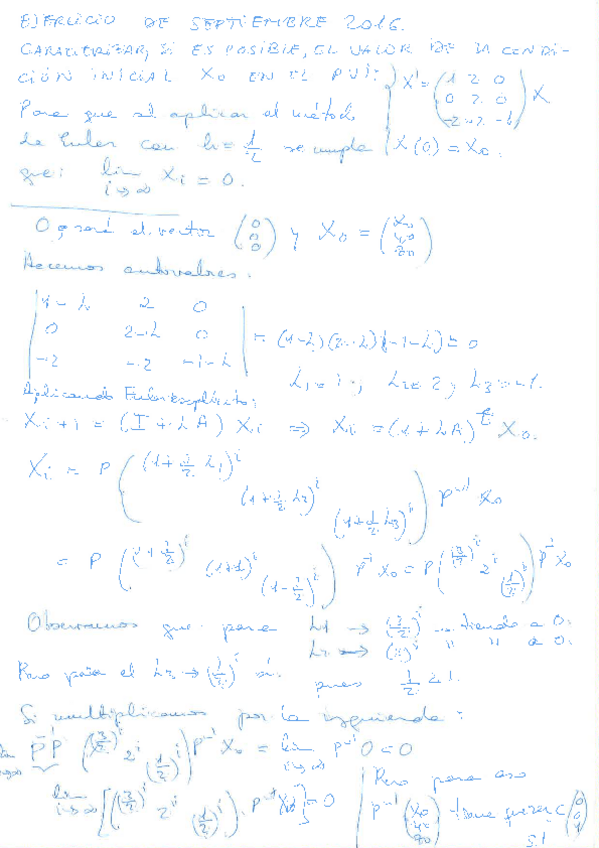 EJERCICIO DE SEPTIEMBRE 2016.
CARACTERIZAR, SI ES POSIBLE, EL VALOR DE LA CONDI-
CIÓN INICIAL X₀ EN EL PVI: { X' = (1 2 0
0 2 0
-2 -2 -1) X
Para que al aplicar el método
de Euler con h = 1/2 se cumpla X(0) = X₀.
que: lim i→∞ Xi = 0.
0 será el vector (0 0 0) y X₀ = (x₀ y₀ z₀)
Hacemos autovalores:
|1-λ 2 0
0 2-λ 0
-2 -2 -1-λ| = (1-λ)(2-λ)(-1-λ) = 0
λ₁ = 1, λ₂ = 2, λ₃ = -1.
Aplicando Euler explícito:
Xi+1 = (I + hA) Xi ⇒ Xi = (1 + hA)^i X₀.
Xi = P ((1 + 1/2 λ₁)^i
(1 + 1/2 λ₂)^i
(1 + 1/2 λ₃)^i) P⁻¹ X₀
= P ((1 + 1/2)^i (1+1)^i (1 - 1/2)^i) P⁻¹ X₀ = P ((3/2)^i 2^i (1/2)^i) P⁻¹ X₀
Observamos que para λ₁ → (3/2)^i tiende a 0.
λ₂ → (2)^i " " a 0.
Pero para el λ₃ → (1/2)^i sí. pues 1/2 < 1.
Si multiplicamos por la izquierda:
P⁻¹P ((3/2)^i 2^i (1/2)^i) P⁻¹ X₀ = lim i→∞ P⁻¹ 0 = 0
lim i→∞ [((3/2)^i 2^i (1/2)^i) · P⁻¹ X₀] = 0
Pero para eso
P⁻¹ (x₀ y₀ z₀) tiene que ser C (0 0 1)